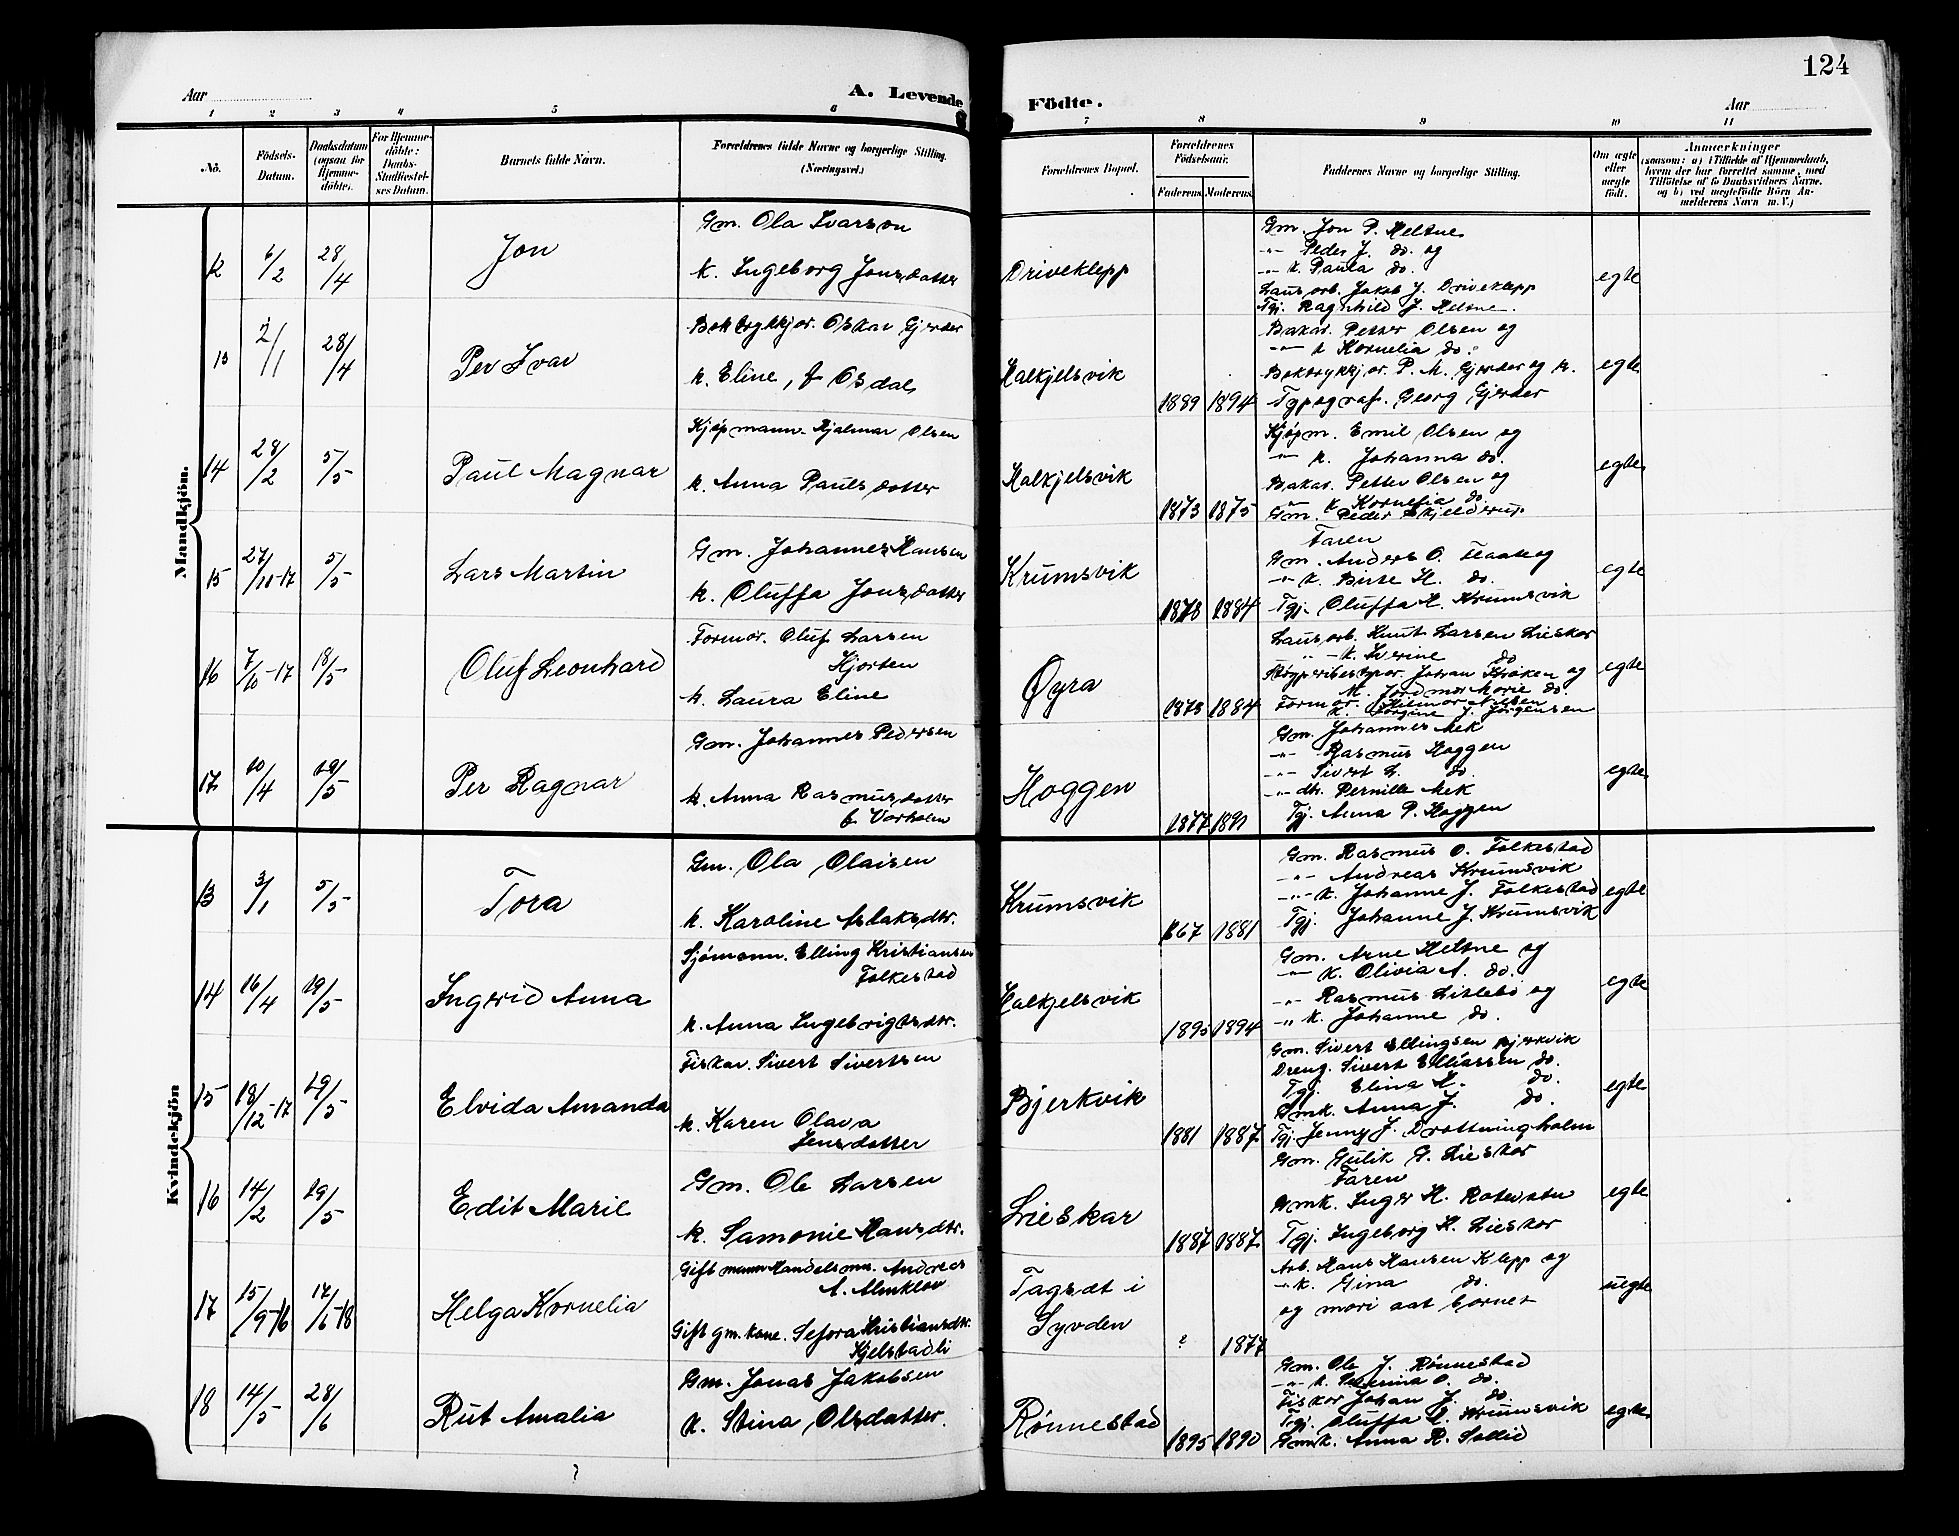 124
Aar
A. Levende Födte.
Aar
1 2 3 4 5 6 7 8 9 10 11
No.
Födsels-Datum.
Daabsdatum (ogsaa for Hjemme-döbte).
For Hjemme-döbte: Daabs-Stadfæstel-ses Datum.
Barnets fulde Navn.
Forældrenes fulde Navne og borgerlige Stilling. (Næringsvei.)
Forældrenes Bopæl.
Forældrenes Födselsaar.
Faderens. Moderens.
Faddernes Navne og borgerlige Stilling.
Om ægte eller uægte født.
Anmærkninger
(saasom: a) i Tilfælde af Hjemmedaab, hvem der har forrettet samme, med Tilføielse af to Daabsvidners Navne, og b) ved uægtefödte Börn An-melderens Navn m. V.)
Mandkjön.
12 6/2 28/4 Jon
Gm. Ola Ivarson
k. Ingeborg Jonsdatter
Driveklepp
Gm. Jon P. Helsne
-"- Peder J. do. og
-"- k. Paula do.
Lausarb. Jakob J. Driveklepp
Tgj. Ragnhild J. Helsne.
egte
13 2/1 28/4 Per Ivar
Boktrykkjar. Oskar Gjerder
k. Eline, f Osdal
Halkjelsvik
1889 1894
Bakar. Petter Olsen og
-"- k Kornelia do.
Boktrykkjar. P. M. Gjerder og k.
Typograf. Georg Gjerder
egte
14 28/2 5/5 Paul Magnar
Kjøpmann. Hjalmar Olsen
k. Anna Paulsdatter
Halkjelsvik
1873 1875
Kjøpm. Emil Olsen og
-"- k. Johanna do.
Bakar. Petter Olsen og
-"- k Kornelia do
Gm. Peder Skjelderup
egte
15 27/11-17 5/5 Lars Martin
Gm. Johannes Hansen
k. Oluffa Jonsdatter
Krumsvik
1878 1884
Faren
Gm. Anders O. Flaate og
-"- k. Birte H. do.
Tgj. Oluffa H. Krumsvik
egte
16 7/10-17 18/5 Oluf Leonhard
Formor. Oluf Larsen
Hjorten
k. Laura Eline
Øyra
1878 1884
Lausarb. Knut Larsen Lieskar
-"- k. Iverine do
Johan Kroken og
k. Marie do.
Formor.
k. J. Jørgensen
egte
17 10/4 19/5 Per Ragnar
Gm. Johannes Pedersen
k. Anna Rasmusdatter
f. Vorholm
Hoggen
1877 1891
Gm. Johannes Aek
-"- Rasmus Hoggen
-"- Sivert L. do.
-"- dtr. Pernille Aek
Tgj. Anna P. Hoggen
egte
Kvindekjön
13 3/1 5/5 Tora
Gm. Ola Olaisen
k. Karoline Aslaksdtr.
Krumsvik
1867 1881
Gm. Rasmus O. Folkestad
-"- Andreas Krumsvik
-"- k. Johanne J. Folkestad
Tgj. Johanne J. Krumsvik
egte
14 16/4 19/5 Ingerid Anna
Sjømann. Elling Kristiansen
Folkestad
k. Anna Ingebrigtsdtr.
Halkjelsvik
1895 1894
Gm. Arne Helsne og
-"- k. Olivia A. do.
-"- Rasmus Litlebø og
-"- k. Johanne do.
egte
15 18/12-17 19/5 Elvida Amanda
Fiskar. Sivert Sivertsen
k. Karen Olava
Jensdatter
Bjerkvik
1881 1887
Gm. Sivert Ellingsen Bjerkvik
Dreng. Sivert Elliassen do.
Tgj. Elina H. do.
Gmk. Anna J. do.
Tgj. Jenny J. Drottningholm
egte
16 14/2 19/5 Edit Marie
Gm. Ole Larsen
k. Samonie Hansdtr.
Lieskar
1887 1887
Gm. Gulik G. Lieskar
Faren
Gmk. Inger H. Rotevatn
Tgj. Ingeborg H. Lieskar
egte
17 15/9-16 17/6-18 Helga Kornelia
Gift mann Handelsmn. Andreas
A. Almklov
Gift gm. kone. Sefora Kristiansdtr.
Kjelstadli
Tagsæt i
Syvden
? 1877
Arb. Hans Hansen Klepp og
-"- k. Gina do.
og mori aat barnet
uegte
18 14/5 28/6 Rut Amalia
Gm. Jonas Jakobsen
k. Stina Olsdatter.
Rønnestad
1895 1890
Gm. Ole J. Rønnestad
-"- k. Severina O. do.
Fiskar Johan J. do.
Tgj. Oluffa H. Krumsvik
Gmk. Anna R. Sollid
egte